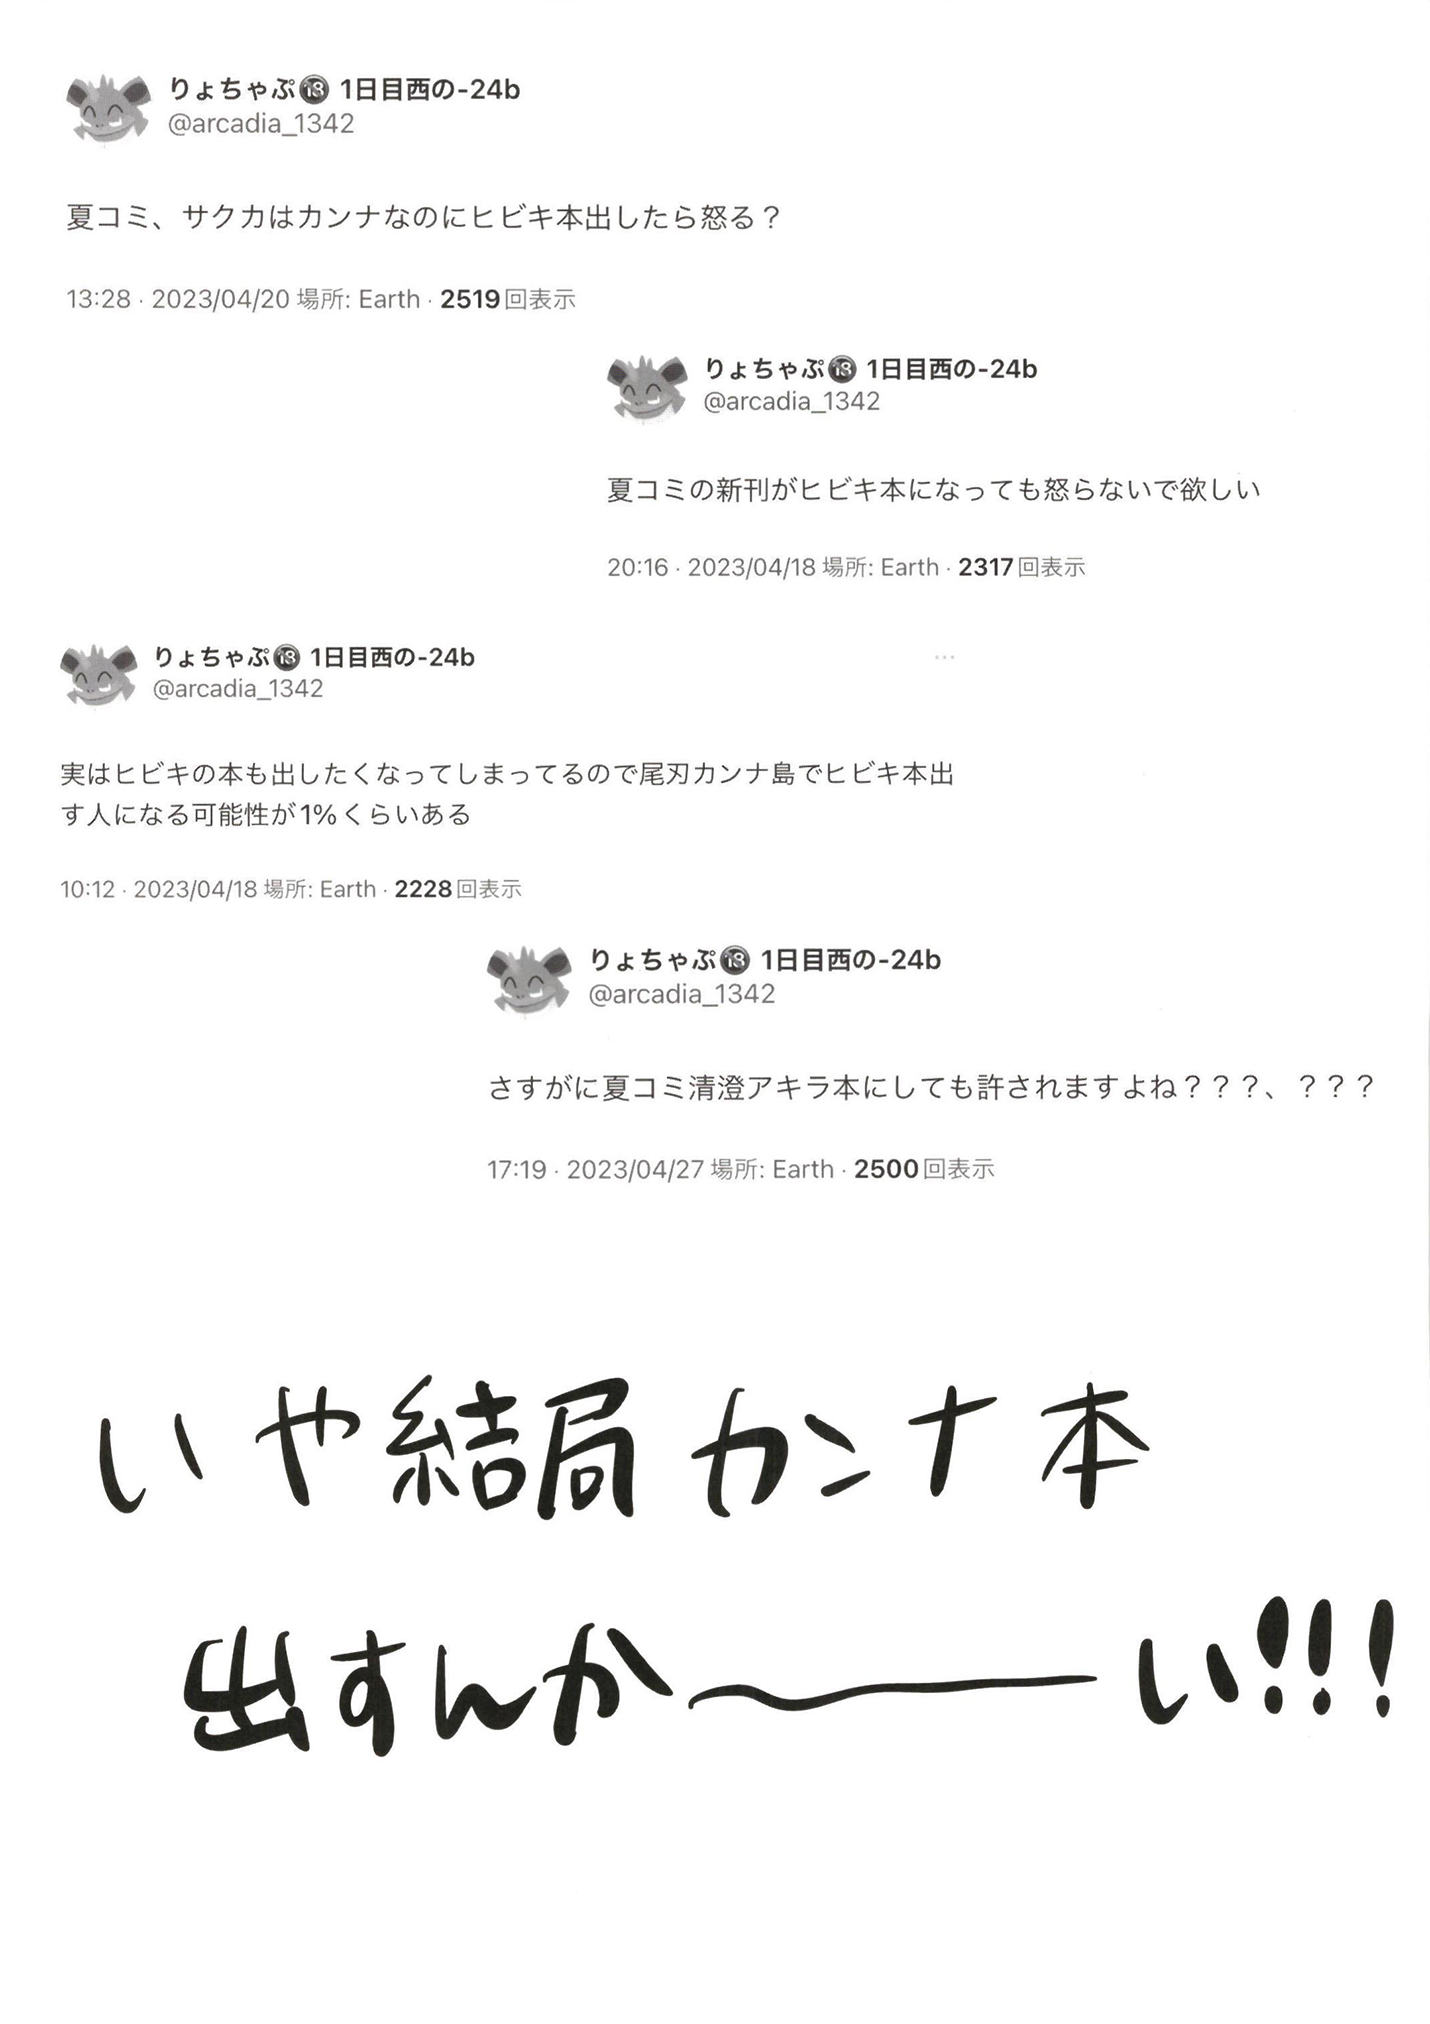 りょちゃぷ🔞 1日目西の-24b
@arcadia_1342
夏コミ、サクカはカンナなのにヒビキ本出したら怒る？
13:28 · 2023/04/20 場所: Earth · 2519回表示
りょちゃぷ🔞 1日目西の-24b
@arcadia_1342
夏コミの新刊がヒビキ本になっても怒らないで欲しい
20:16 · 2023/04/18 場所: Earth · 2317回表示
りょちゃぷ🔞 1日目西の-24b
@arcadia_1342
実はヒビキの本も出したくなってしまってるので尾刃カンナ島でヒビキ本出
す人になる可能性が1%くらいある
10:12 · 2023/04/18 場所: Earth · 2228回表示
りょちゃぷ🔞 1日目西の-24b
@arcadia_1342
さすがに夏コミ清澄アキラ本にしても許されますよね？？？、？？？
17:19 · 2023/04/27 場所: Earth · 2500回表示
いや結局カンナ本
出すんか〜い!!!